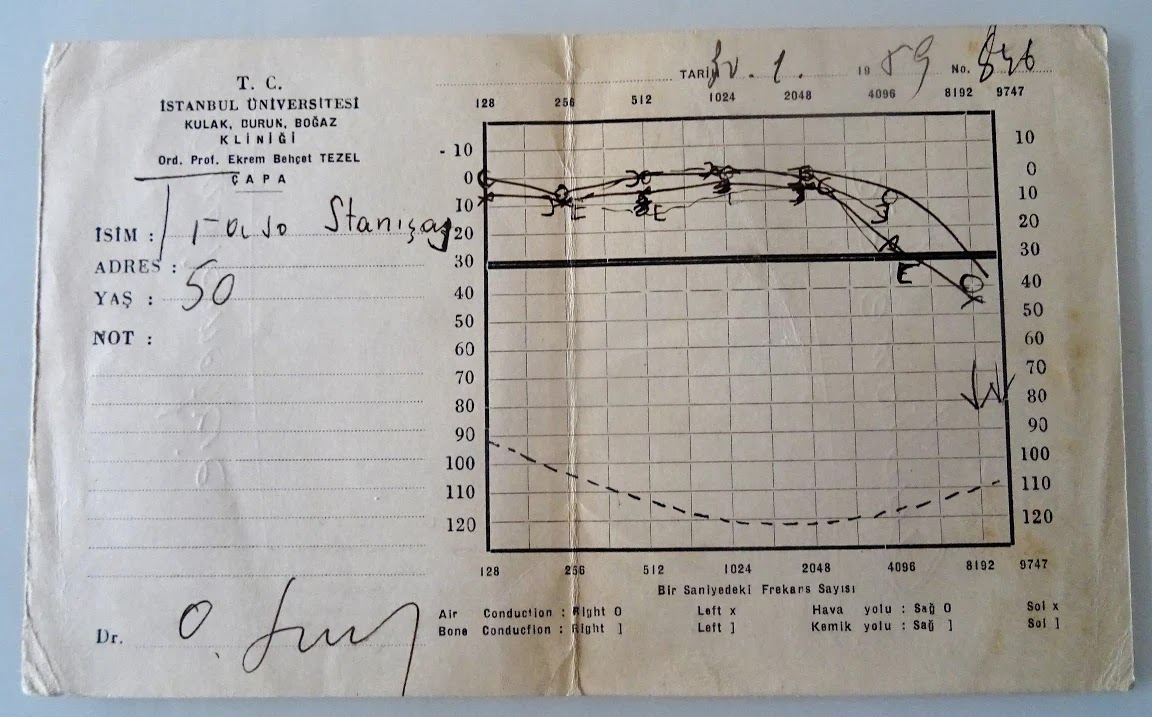 T. C.
İSTANBUL ÜNİVERSİTESİ
KULAK, BURUN, BOĞAZ
KLİNİĞİ
Ord. Prof. Ekrem Behçet TEZEL
ÇAPA
İSİM :
ADRES :
YAŞ : 50
NOT :
Dr.
TARİH 1. 19 59 No. 846
128 256 512 1024 2048 4096 8192 9747
- 10 10
0 0
10 10
20 20
30 30
40 40
50 50
60 60
70 70
80 80
90 90
100 100
110 110
120 120
128 256 512 1024 2048 4096 8192 9747
Bir Saniyedeki Frekans Sayısı
Air Conduction : Right O Left x Hava yolu : Sağ O Sol x
Bone Conduction : Right ] Left ] Kemik yolu : Sağ ] Sol ]